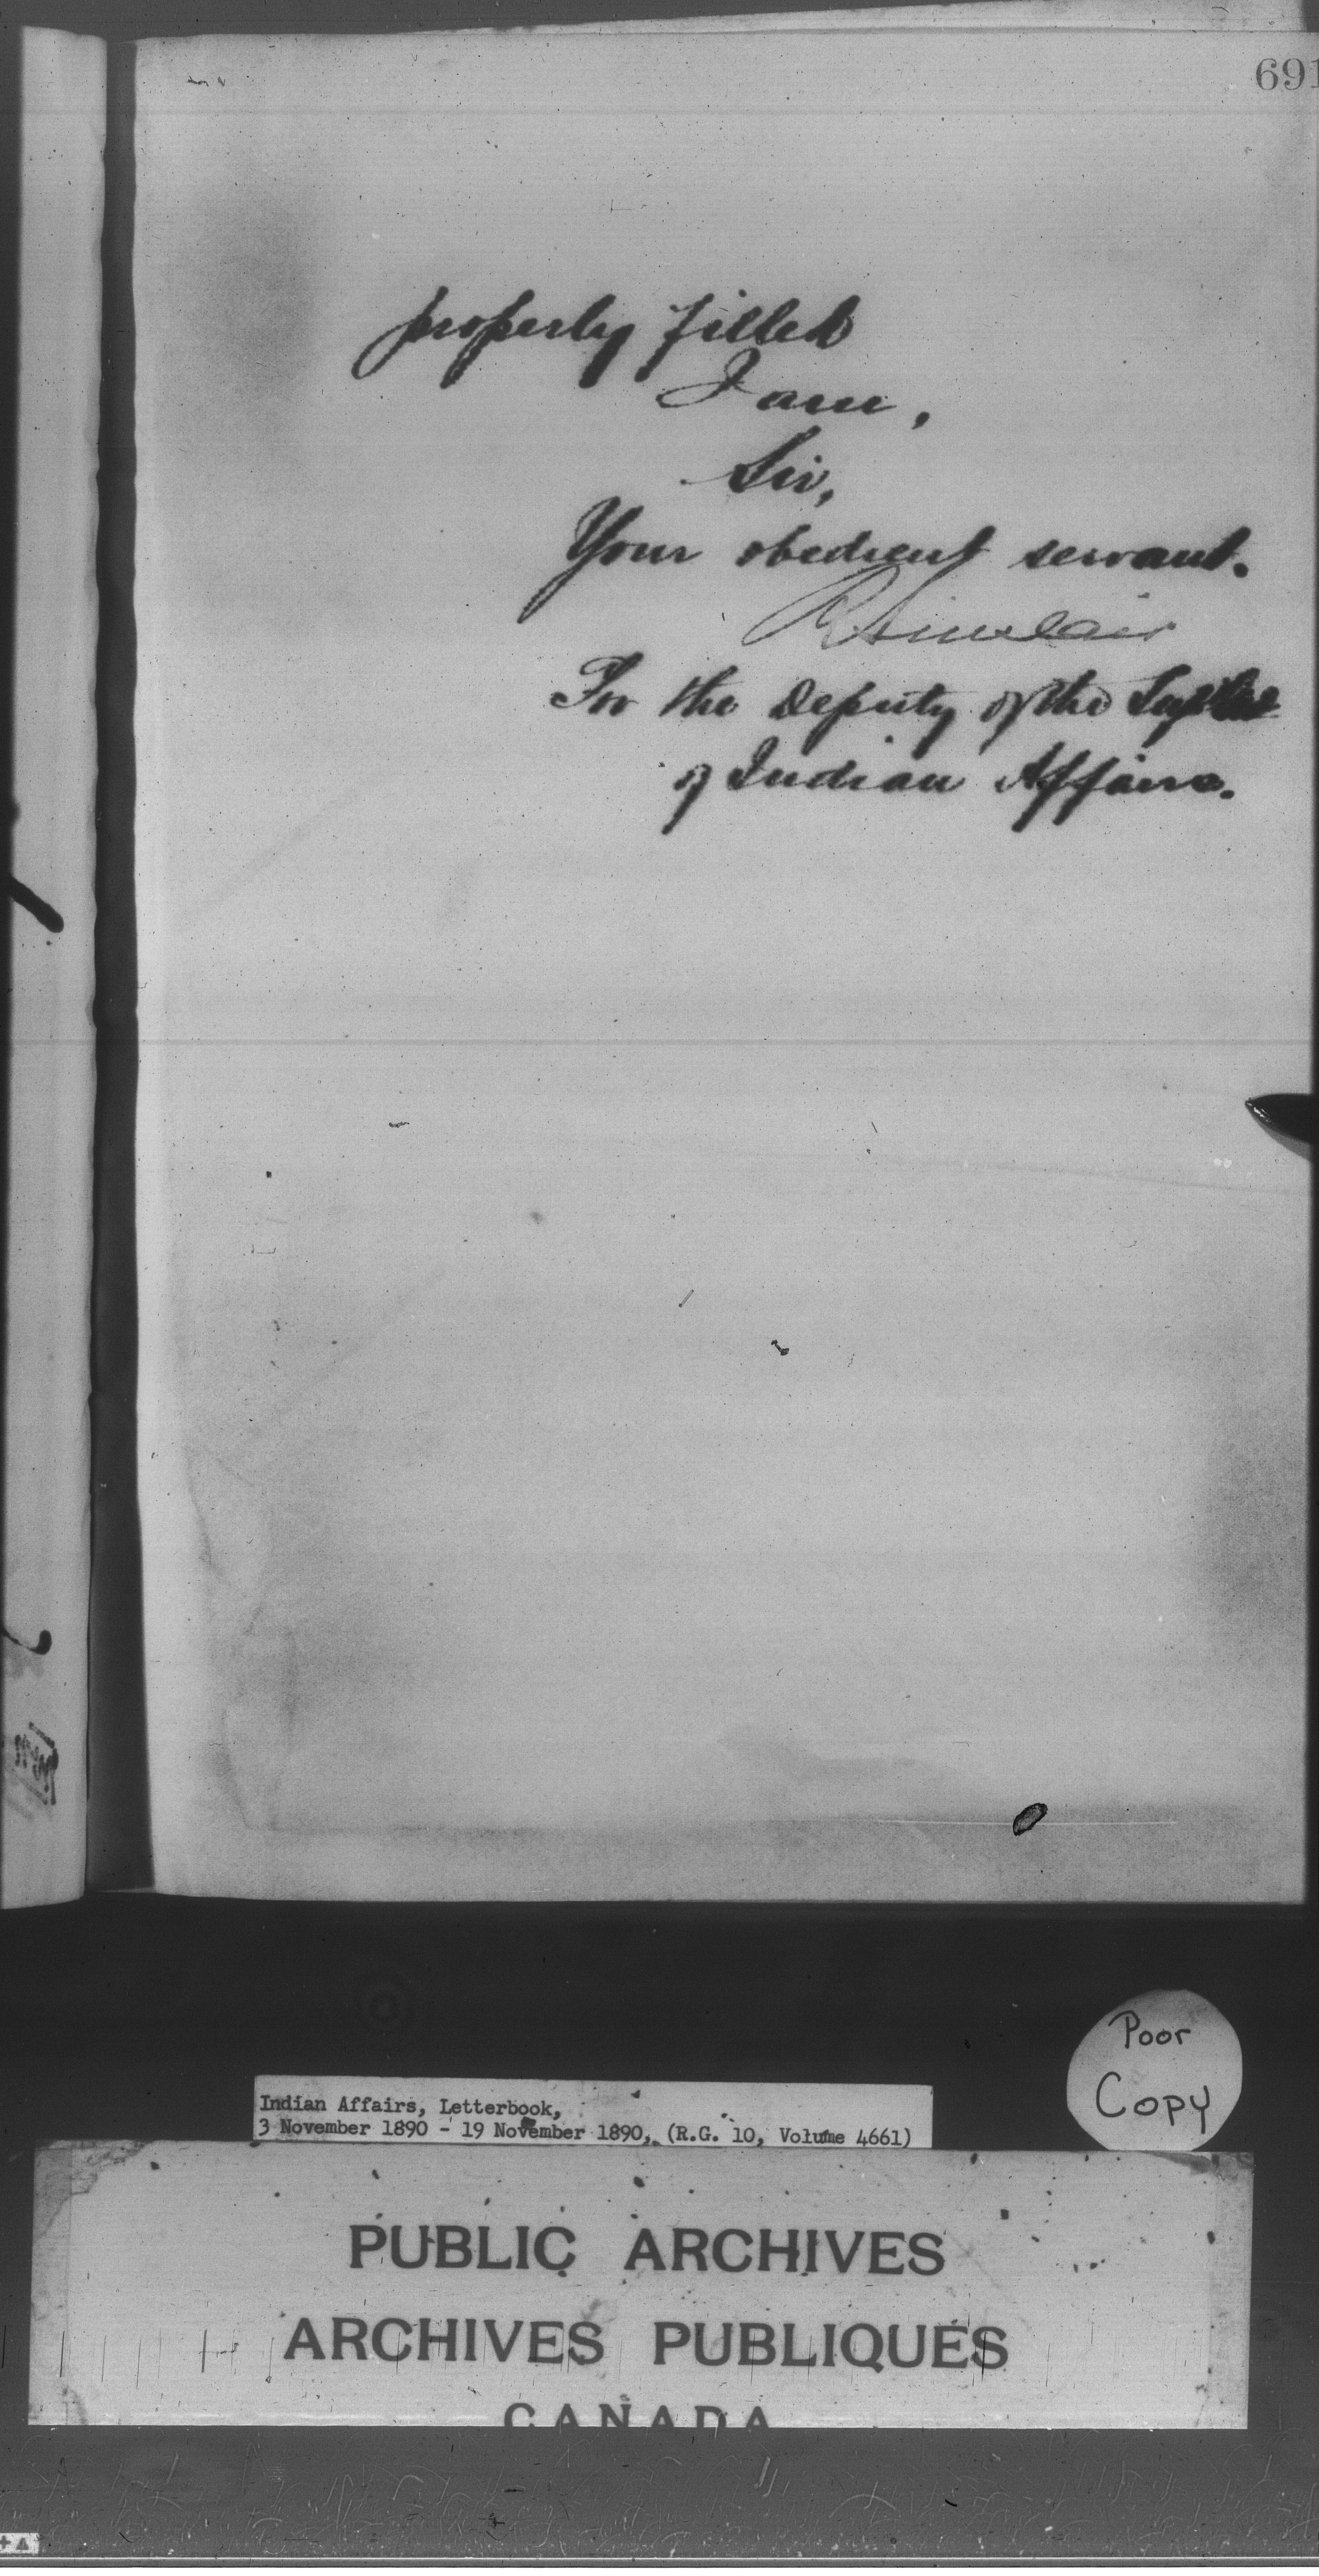 691
properly filled
I am,
Sir,
Your obedient servant.
R Sinclair
For the Deputy of the
of Indian Affairs.
Poor
Copy
Indian Affairs, Letterbook,
3 November 1890 - 19 November 1890, (R.G. 10, Volume 4661)
PUBLIC ARCHIVES
ARCHIVES PUBLIQUES
CANADA